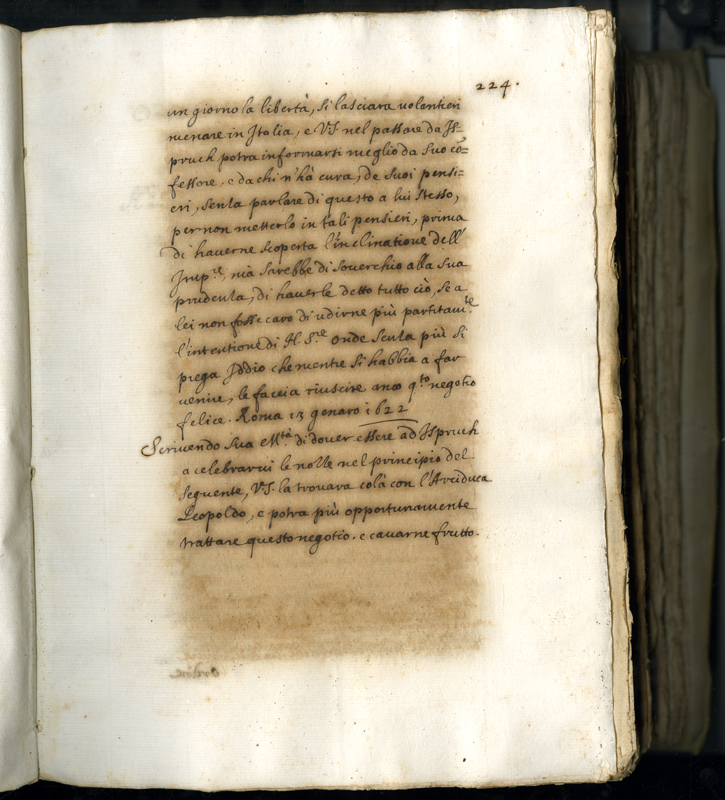 224.
un giorno la libertà, si lasciara uolentieri
menare in Italia, e V.S. nel passare da Is=
pruch potra informarsi meglio da suo cō=
fessore, e da chi n'hà cura, de suoi pensi=
eri, senza parlare di questo a lui stesso,
per non metterlo in tali pensieri, prima
di hauerne scoperta l'inclinatione dell'
Imp.re, ma sarebbe di souerchio alla sua
prudenza, di hauerle detto tutto ciò, se a
lei non fosse caro di udirne più partitam.te
l'intentione di N. S.re onde senza più si
prega Iddio che mentre si habbia a far
uenire, le faccia riuscire anco q.to negotio
felice. Roma 13 genaro 1622
Scriuendo Sua M.tà di douer essere ad Ispruch
a celebrarui le nozze nel principio del
seguente, V.S. la trouara colà con l'Arciduca
Leopoldo, e potra più opportunamente
trattare questo negotio, e cauarne frutto.